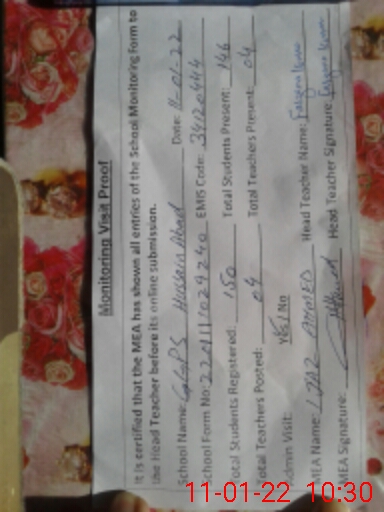 Monitoring Visit Proof
It is certified that the MEA has shown all entries of the School Monitoring Form to
the Head Teacher before its online submission.
School Name: GGPS Hussain Abad Date: 11-01-22
School Form No: EMIS Code:
Total Students Registered: 150 Total Students Present: 146
Total Teachers Posted: 04 Total Teachers Present: 04
Admin Visit: Yes/No
MEA Name: AHMED Head Teacher Name:
MEA Signature: Head Teacher Signature:
11-01-22 10:30